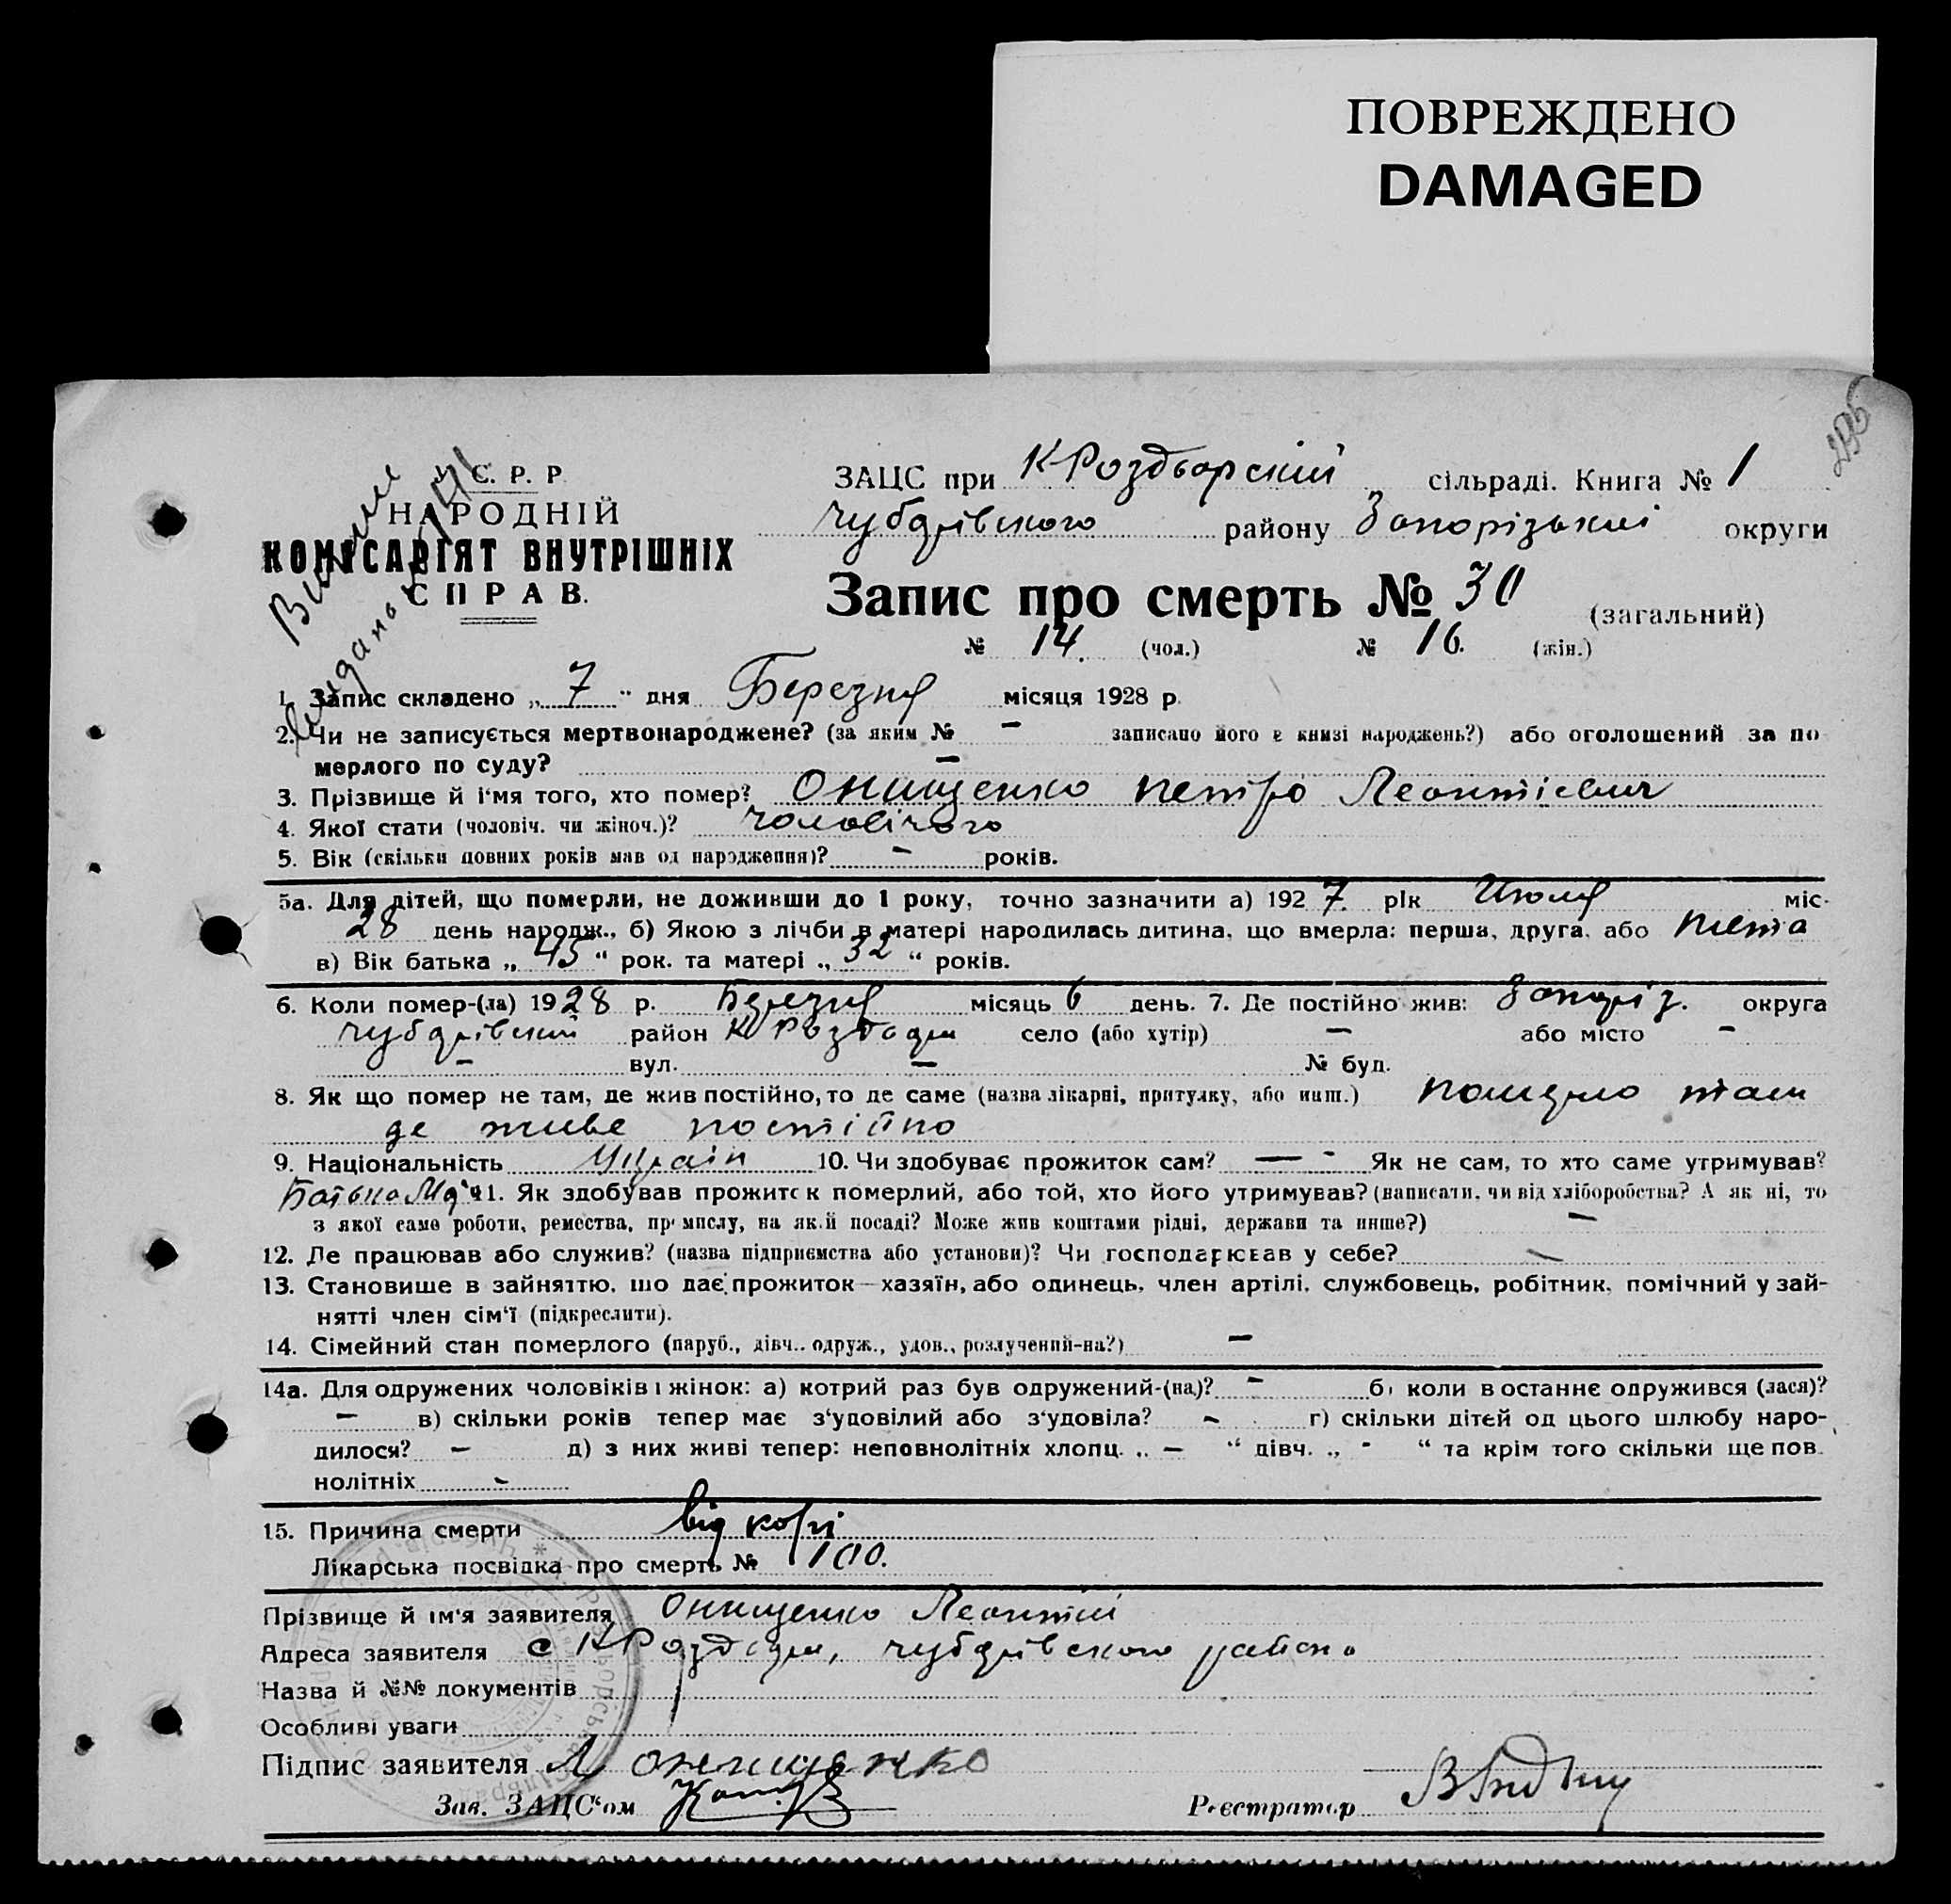 ПОВРЕЖДЕНО
DAMAGED
У С. Р. Р.
НАРОДНІЙ
КОМІСАРІЯТ ВНУТРІШНІХ
СПРАВ.
ЗАЦС при К-Роздборскій сільраді. Книга № 1
Чубарівського району Запорізькій округи
Запис про смерть № 30 (загальний)
№ 14. (чол.) № 16. (жін.)
1. Запис складено „ 7 “ дня Березня місяця 1928 р.
2. Чи не записується мертвонароджене? (за яким № – записано його в книзі народжень?) або оголошений за по
мерлого по суду? –
3. Прізвище й і'мя того, хто помер? Онищенко Петро Леонтієвич
4. Якої стати (чоловіч. чи жіноч.)? чоловічого
5. Вік (скільки повних років мав од народження)? – років.
5а. Для дітей, що померли, не доживши до 1 року, точно зазначити а) 1927. рік Июля міс.
28 день народж., б) Якою з лічби в матері народилась дитина, що вмерла: перша, друга, або пята
в) Вік батька „ 45 “ рок. та матері „ 32 “ років.
6. Коли помер-(ла) 1928 р. Березня місяць 6 день. 7. Де постійно жив: Запоріз. округа
Чубарівский район К Роздори село (або хутір) – або місто –
– вул. – № буд.
8. Як що помер не там, де жив постійно, то де саме (назва лікарні, притулку, або инш.) померло там
де живе постійно
9. Національність Україн 10. Чи здобуває прожиток сам? — - Як не сам, то хто саме утримував?
Батько 11. Як здобував прожиток померлий, або той, хто його утримував? (написати, чи від хліборобства? А як ні, то
з якої саме роботи, ремества, промислу, на якій посаді? Може жив коштами рідні, держави та инше?) –
12. Де працював або служив? (назва підприємства або установи)? Чи господарював у себе? –
13. Становище в зайняттю, що дає прожиток—хазяїн, або одинець, член артілі, службовець, робітник, помічний у зай-
нятті член сім'ї (підкреслити).
14. Сімейний стан померлого (паруб., дівч., одруж., удов., розлучений-на?) –
14а. Для одружених чоловіків і жінок: а) котрий раз був одружений-(на)? – б) коли в останнє одружився (лася)?
– в) скільки років тепер має з'удовілий або з'удовіла? – г) скільки дітей од цього шлюбу наро-
дилося? – д) з них живі тепер: неповнолітніх хлопц. „ – “ дівч. „ - “ та крім того скільки ще пов.
нолітніх –
15. Причина смерти від корі
Лікарська посвідка про смерть № 100.
Прізвище й ім'я заявителя Онищенко Леонтій
Адреса заявителя с К Роздори, Чубарівського району
Назва й №№ документів
Особливі уваги
Підпис заявителя Л Онищенко
Зав. ЗАЦС'ом
Реєстратор